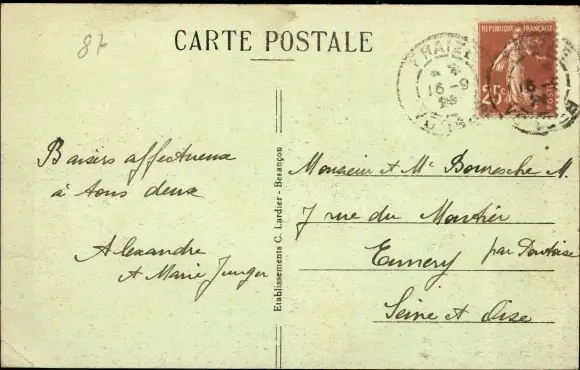 87
CARTE POSTALE
REPUBLIQUE FRANÇAISE
25c
POSTES
16 - 9
Baisers affectueux
à tous deux
Alexandre
et Marie Junger
Etablissements C. Lardier - Besançon
Monsieur et Me Bouresche M.
7 rue du Moutier
Ennery par Pontoise
Seine et Oise